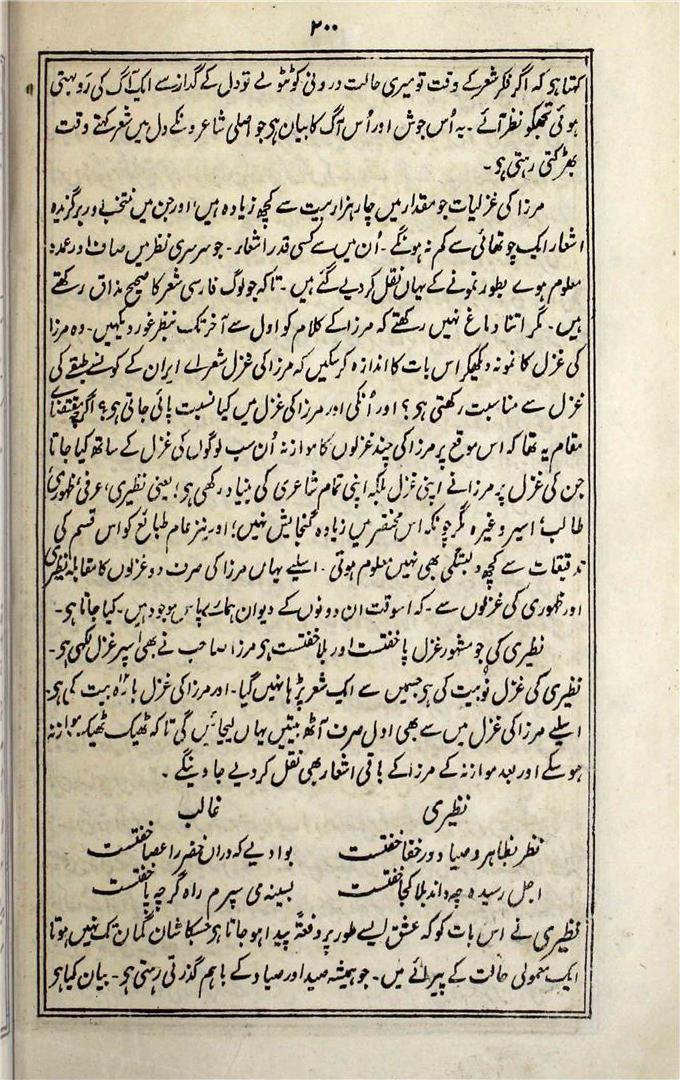 ۲۰۰
کہتا ہی کہ اگر فکر شعر کے وقت تو میری حالت درونی کو ٹٹولے تو دل کے گداز سے ایک آگ کی رَو بہتی
ہوئی تجھکو نظر آئے ۔ یہ اُس جوش اور اُس آگ کا بیان ہی جو اصلی شاعرونکے دل میں شعر کہتے وقت
بھڑکتی رہتی ہی ۔
مرزا کی غزلیات جو مقدار میں چار ہزار بیت سے کچھ زیادہ ہیں، اور جن میں منتخب اور برگزیدہ
اشعار ایک چوتھائی سے کم نہ ہونگے ۔ اُن میں سے کسی قدر اشعار ۔ جو سرسری نظر میں صاف اور عمدہ
معلوم ہوے بطور نمونے کے یہاں نقل کر دیے گئے ہیں ۔ تاکہ جو لوگ فارسی شعر کا صحیح مذاق رکھتے
ہیں ۔ مگر اتنا دماغ نہیں رکھتے کہ مرزا کے کلام کو اول سے آخر تک بنظر غور دیکھیں ۔ وہ مرزا
کی غزل کا نمونہ دیکھکر اس بات کا اندازہ کر سکیں کہ مرزا کی غزل شعراے ایران کے کونسے طبقے کی
غزل سے مناسبت رکھتی ہی ؟ اور اُنکی اور مرزا کی غزل میں کیا نسبت پائی جاتی ہی ؟ اگرچہ مقتضاے
مقام یہ تھا کہ اس موقع پر مرزا کی چند غزلوں کا موازنہ اُن سب لوگوں کی غزل کے ساتھ کیا جاتا
جن کی غزل پر مرزا نے اپنی غزل بلکہ اپنی تمام شاعری کی بنیاد رکھی ہی ؛ یعنی نظیری، عرفی، ظہوری،
طالب، اسیر وغیرہ مگر چونکہ اس مختصر میں زیادہ گنجایش نہیں ؛ اور نیز عام طبائع کو اس قسم کی
تدقیقات سے کچھ دلبستگی بھی نہیں معلوم ہوتی ۔ اسلیے یہاں مرزا کی صرف دو غزلوں کا مقابلہ نظیری
اور ظہوری کی غزلوں سے ۔ کہ اسوقت ان دونوں کے دیوان ہمارے پاس موجود ہیں ۔ کیا جاتا ہی ۔
نظیری کی جو مشہور غزل پا خفتست اور بلا خفتست ہی مرزا صاحب نے بھی اُسپر غزل لکھی ہی ۔
نظیری کی غزل نو بیت کی ہی جسمیں سے ایک شعر پڑہا نہیں گیا ۔ اور مرزا کی غزل بارہ بیت کی ہی ۔
اسلیے مرزا کی غزل میں سے بھی اول صرف آٹھ بیتیں یہاں لیجائیں گی تاکہ ٹھیک ٹھیک موازنہ
ہو سکے اور بعد موازنہ کے مرزا کے باقی اشعار بھی نقل کر دیے جاوینگے ۔
نظیری غالب
نظر بظاہر و صیاد در خفا خفتست بوادیے کہ دران خضر را عصا خفتست
اجل رسیدہ چہ داند بلا کجا خفتست بسینہ می سپرم راہ گرچہ پا خفتست
نظیری نے اس بات کو کہ عشق ایسے طور پر دفعۃً پیدا ہو جاتا ہی جسکا شان گمان تک نہیں ہوتا
ایک معمولی حالت کے پیرائے میں ۔ جو ہمیشہ صید اور صیاد کے باہم گذرتی رہتی ہی ۔ بیان کیا ہی